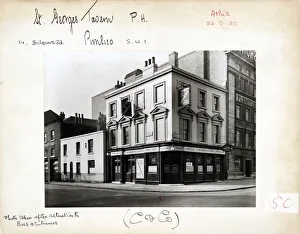 St. Georges Tavern P.H.
14. Belgrave Rd. Pimlico S.W.1.
Photo taken after alterations to
Bars & Entrances
(C & Co)
S.C.